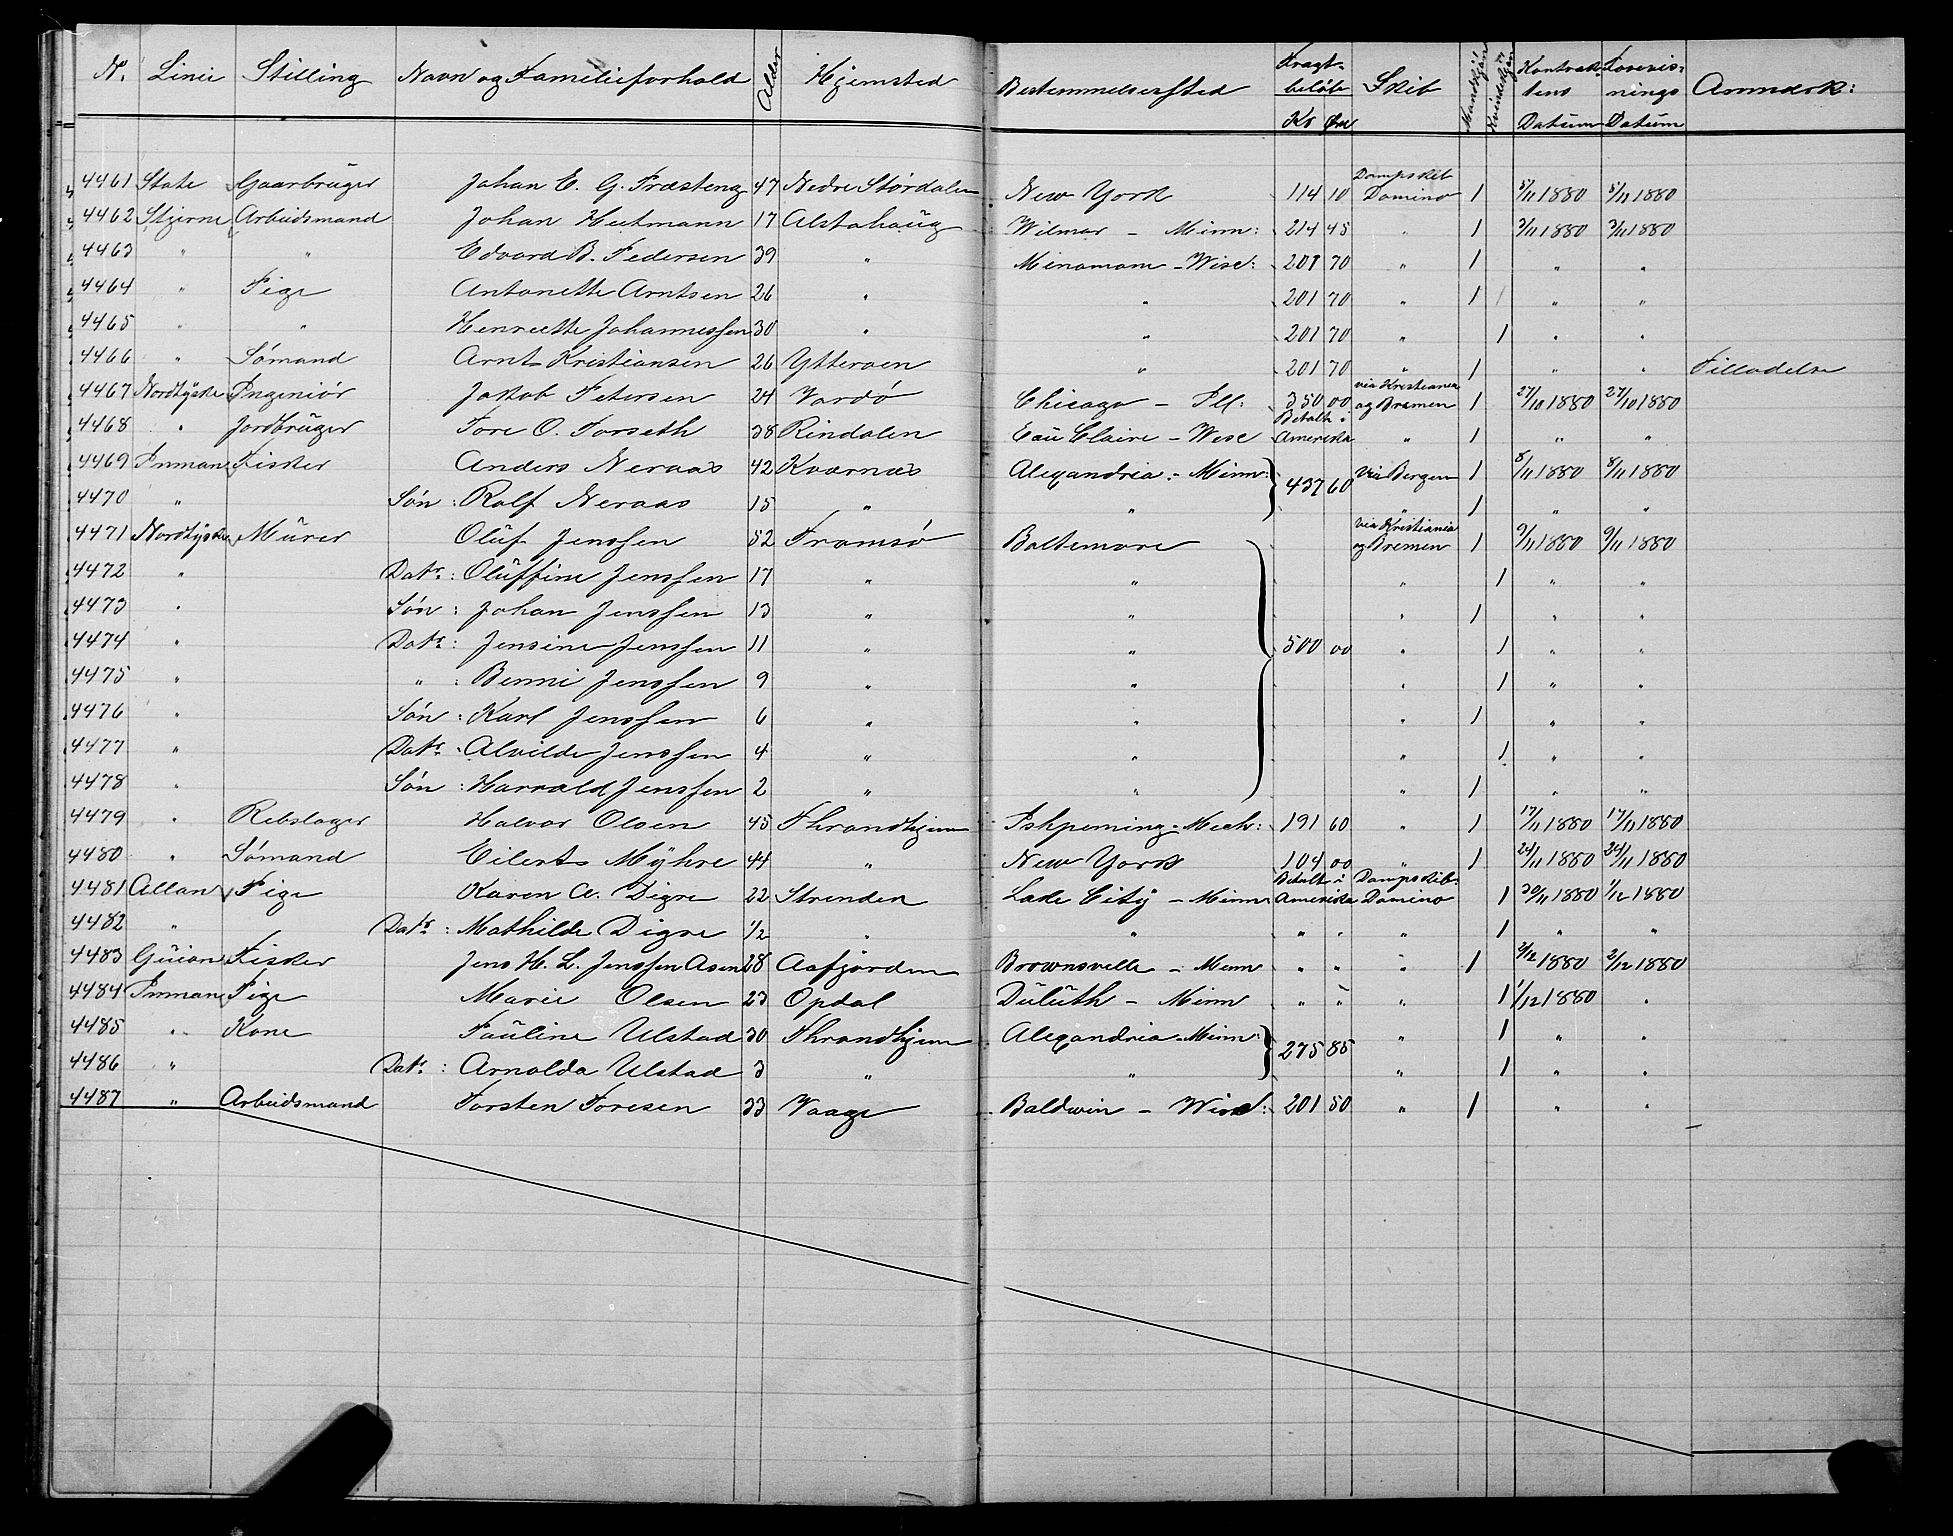 N. Linie Stilling Navn og Familieforhold Alder Hjemsted Bestemmelsessted Fragtbeløb Kr Øre Skib Mandkjøn Kvindekjøn Kontraktens Datum Forevisnings Datum Anmærk:
4461 State Gaarbrüger Johan E. G. Præsteng 47 Nedre Størdalen New York 114 10 Dampskib Domino 1 5/11 1880 5/11 1880
4462 Stjerne Arbeidsmand Johan Heitmann 17 Alstahaüg Wilmar - Minn: 214 45 " 1 3/11 1880 3/11 1880
4463 " " Edvard B. Pedersen 39 " Minomom - Wisc: 201 70 " 1 " "
4464 " Pige Antonette Arntsen 26 " " 201 70 " 1 " "
4465 " " Henriette Johannessen 30 " " 201 70 " 1 " "
4466 " Sømand Arnt Kristiansen 26 Ytterøen " 201 70 " 1 " " Filladelss
4467 Nordtÿske Ingeniør Jakob Petersen 24 Vardø Chicago - Ill: 350 00 via Kristiania og Bremen 1 27/10 1880 27/10 1880
4468 " Jordbrüger Tore O. Forseth 38 Rindalen Eaü Claire - Wisc Betalt i Amerika " 1 " "
4469 Inman Fisker Anders Neraas 42 Kværnæs Alexandria - Minn: 437 60 via Bergen 1 8/11 1880 8/11 1880
4470 " Søn: Rolf Neraas 15 " " " 1 " "
4471 Nordtÿske Mürer Olüf Jenssen 52 Tromsø Baltemore via Kristiania og Bremen 1 9/11 1880 9/11 1880
4472 " Datr: Olüffine Jenssen 17 " " " 1 " "
4473 " Søn: Johan Jenssen 13 " " " 1 " "
4474 " Datr: Jensine Jenssen 11 " " 500 00 " 1 " "
4475 " " : Benni Jenssen 9 " " " 1 " "
4476 " Søn: Karl Jenssen 6 " " " 1 " "
4477 " Datr: Alvilde Jenssen 4 " " " 1 " "
4478 " Søn: Harrald Jenssen 2 " " " 1 " "
4479 " Rebslager Halvor Olsen 45 Throndhjem Ishpeming - Mech: 191 60 " 1 17/11 1880 17/11 1880
4480 " Sømand Eilert Mÿhre 44 " New York 104 00 " 1 24/11 1880 24/11 1880
4481 Allan Pige Karen A. Digre 22 Strinden Lake Citÿ - Minn Betalt i Amerika Dampskib: Domino 1 30/11 1880 1/12 1880
4482 " Datr: Mathilde Digre 1/2 " " " " " 1 " "
4483 Güion Fisker Jens H. L. Jenssen Asen 28 Aafjorden Brownsville - Minn " " " 1 2/12 1880 2/12 1880
4484 Inman Pige Marie Olsen 23 Opdal Dülüth - Minn " " " 1 1/12 1880 "
4485 " Kone Paüline Ulstad 30 Throndhjem Alexandria - Minn: 275 85 " 1 " "
4486 " Datr: Arnolda Ulstad 3 " " " 1 " "
4487 " Arbeidsmand Torsten Toresen 33 Vaage Baldwin - Wisc: 201 50 " 1 " "